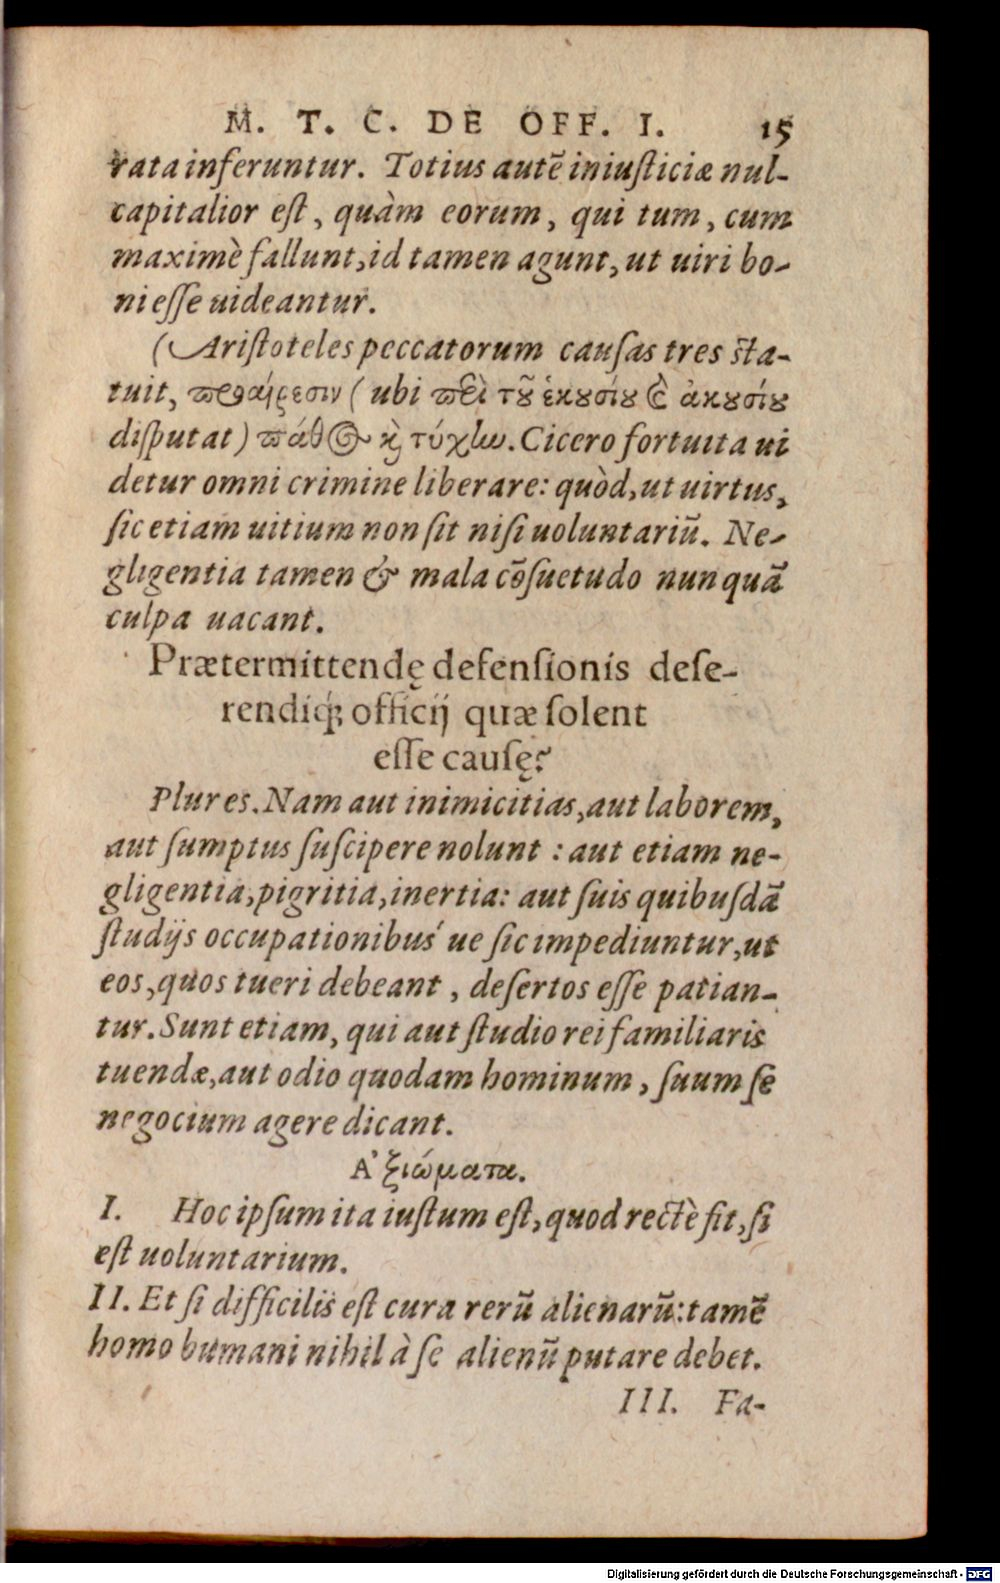 M. T. C. DE OFF. I. 15
rata inferuntur. Totius autẽ iniuſticiæ nul-
capitalior eſt, quàm eorum, qui tum, cum
maximè fallunt, id tamen agunt, ut uiri bo-
ni eſſe uideantur.
(Ariſtoteles peccatorum cauſas tres ſta-
tuit, προαίρεσιν (ubi πρὶ τȣ͂ ἑκȣσίȣ & ἀκȣσίȣ
diſputat) πάθος κὶ τύχlω. Cicero fortuita ui
detur omni crimine liberare: quòd, ut uirtus,
ſic etiam uitium non ſit niſi uoluntariũ. Ne-
gligentia tamen & mala cõſuetudo nunquã
culpa uacant.
Prætermittendę defenſionis deſe-
rendiq́; officij quæ ſolent
eſſe cauſę?
Plures. Nam aut inimicitias, aut laborem,
aut ſumptus ſuſcipere nolunt : aut etiam ne-
gligentia, pigritia, inertia: aut ſuis quibuſdã
ſtudijs occupationibuś ue ſic impediuntur, ut
eos, quos tueri debeant, deſertos eſſe patian-
tur. Sunt etiam, qui aut ſtudio rei familiaris
tuendæ, aut odio quodam hominum, ſuum ſe
negocium agere dicant.
Ἀξιώματα.
I. Hoc ipſum ita iuſtum eſt, quod rectè fit, ſi
eſt uoluntarium.
II. Et ſi difficilis eſt cura rerũ alienarũ: tamẽ
homo humani nihil à ſe alienũ putare debet.
III. Fa-
Digitalisierung gefördert durch die Deutsche Forschungsgemeinschaft - DFG